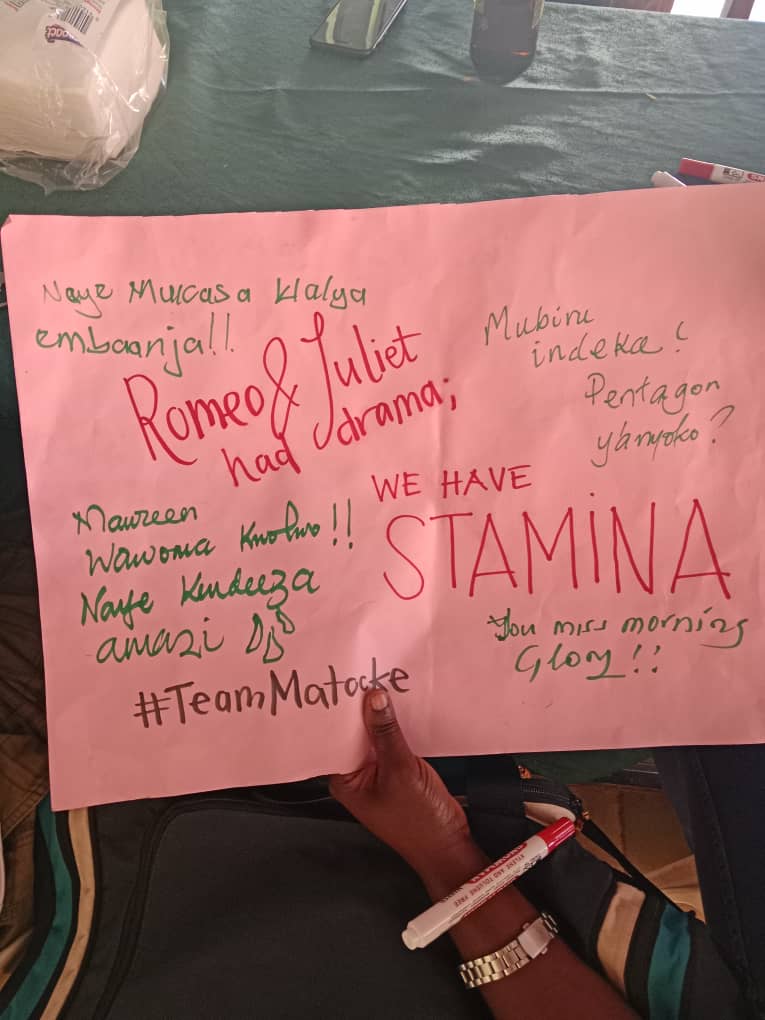 Naye Mukasa Walya
embaanja!!
Romeo & Juliet
had drama;
Mubiru
indeka!
Pentagon
y'anyoko?
WE HAVE
STAMINA
Maureen
Wawoma
!!
Naye Kendeeza
amazi
You miss morning
Glory!!
#TeamMatooke
XYLENE AND TOLUENE FREE